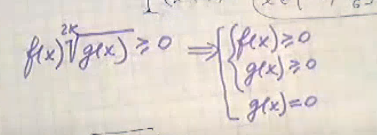 f(x) \sqrt[2k]{g(x)} ≥ 0 ⟹ [ { f(x) ≥ 0
g(x) ≥ 0
g(x) = 0